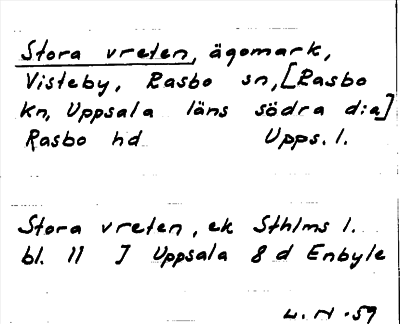 Stora vreten, ägomark,
Visteby, Rasbo sn, [Rasbo
kn, Uppsala läns södra d:a]
Rasbo hd Upps. l.
Stora vreten, ek Sthlms l.
bl. 11 J Uppsala 8 d Enbyle
L. N. 59